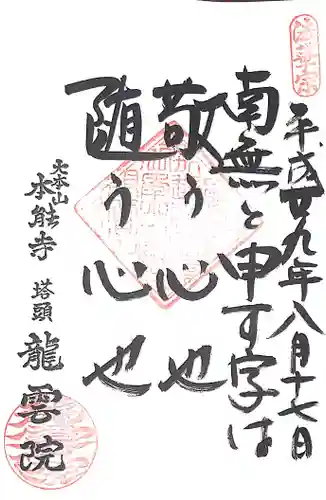 法華宗
平成廿九年八月十七日
南無と申す字は
敬う心也
随う心也
大本山
本能寺
塔頭
龍雲院